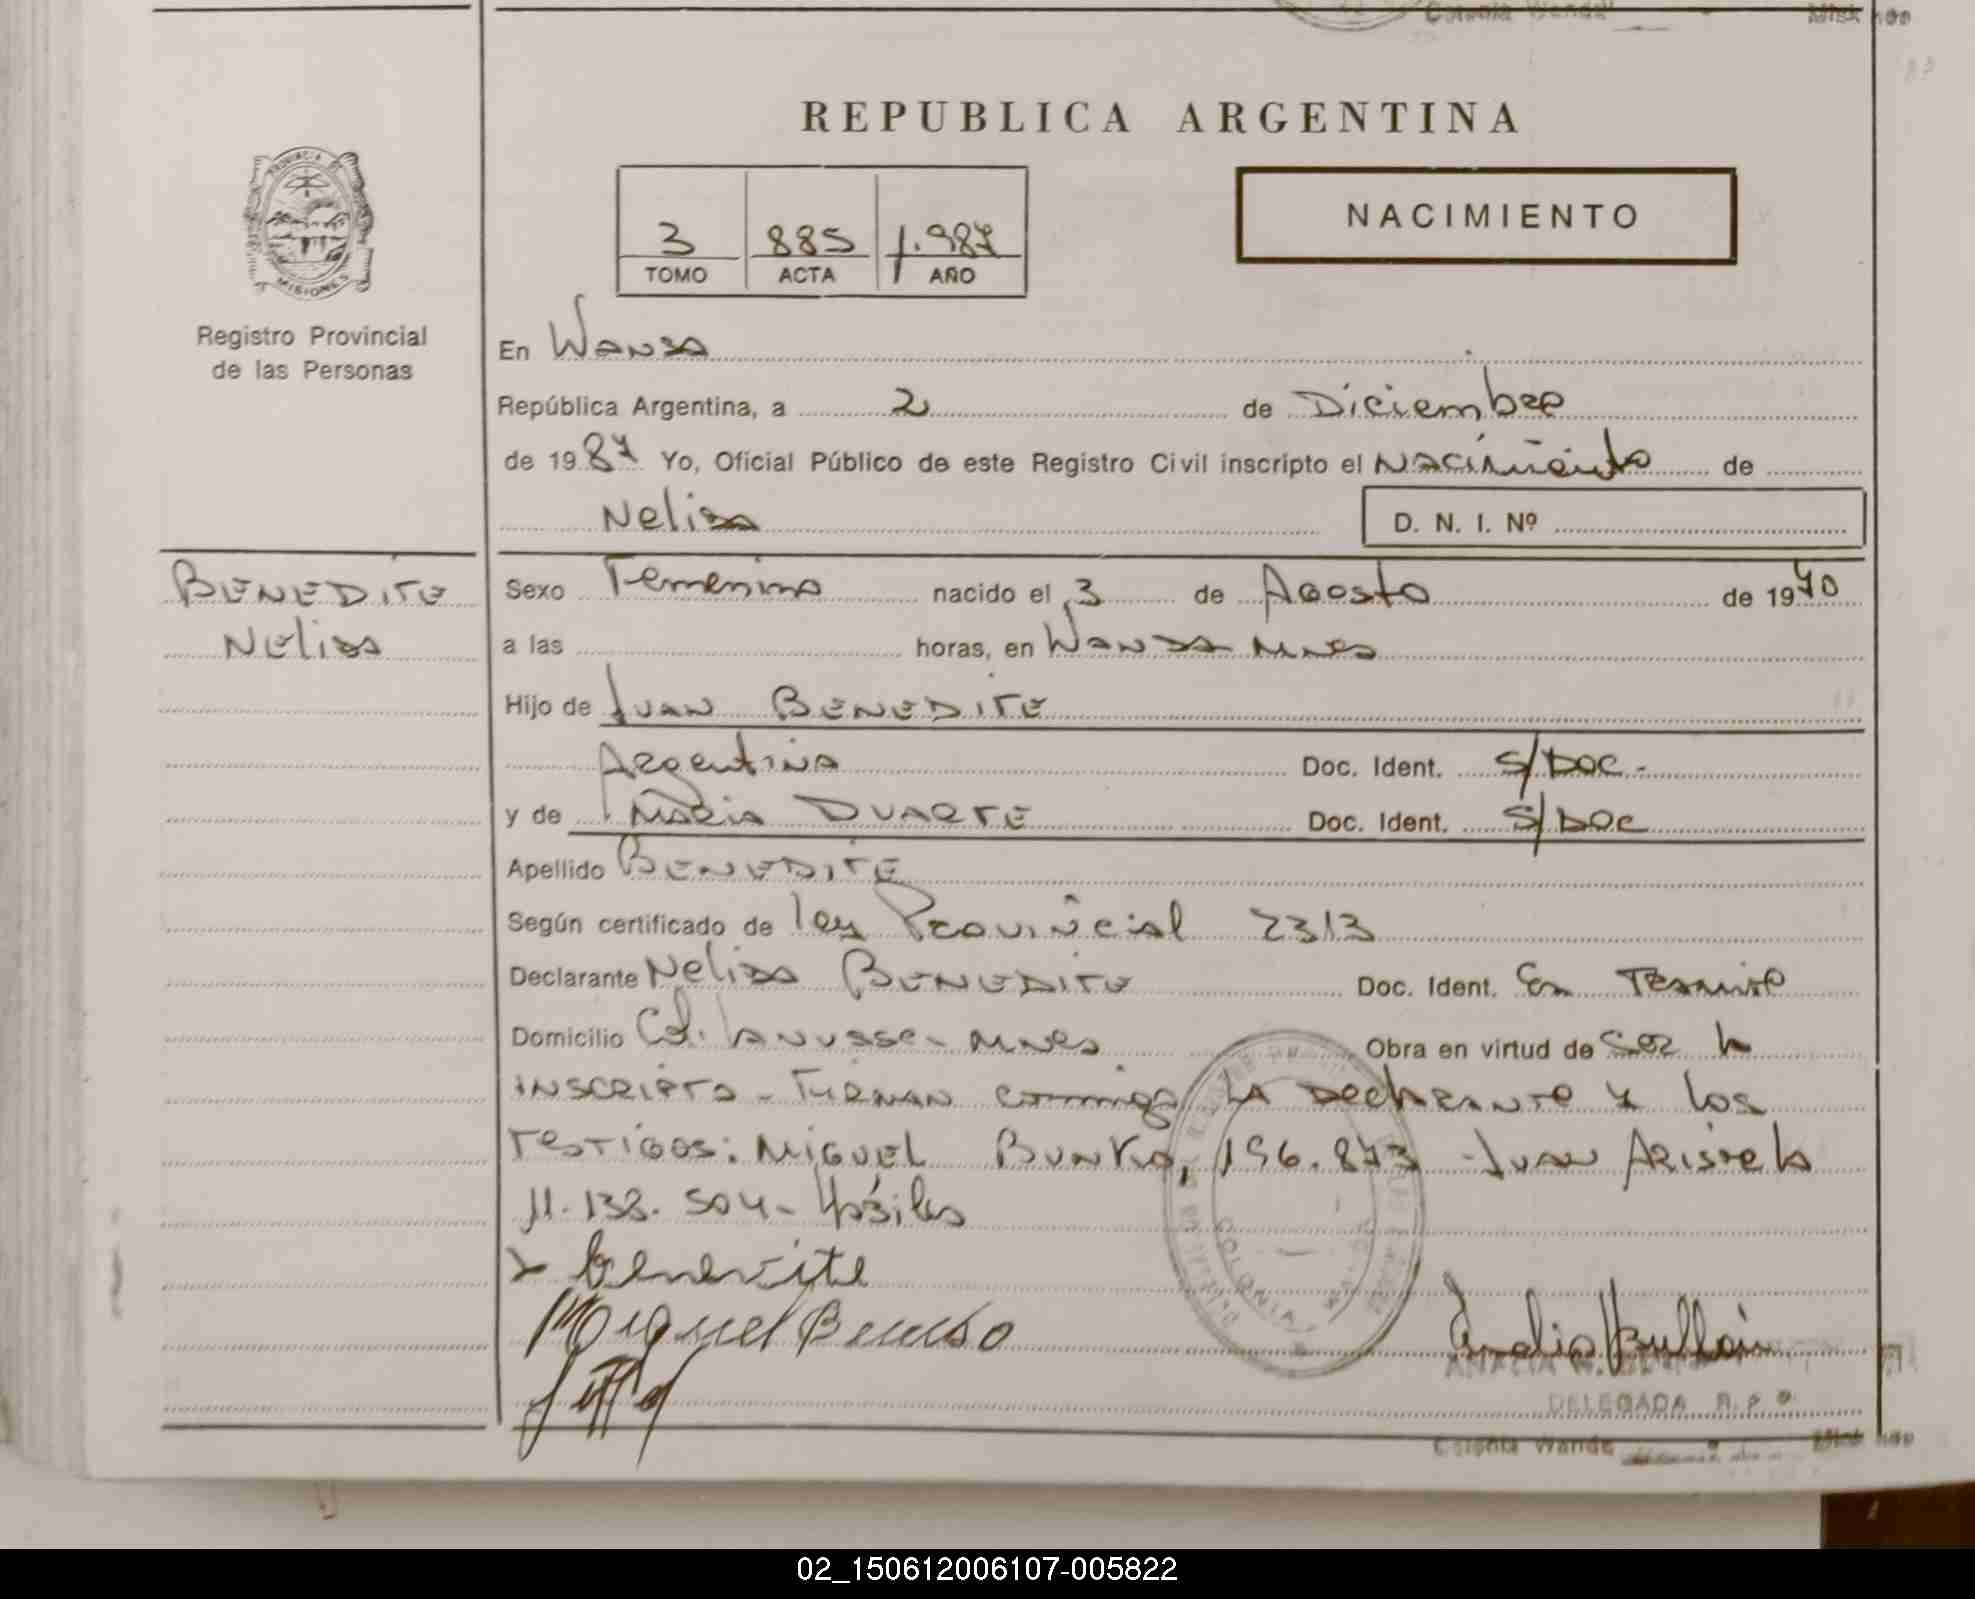 Colonia Wanda
REPUBLICA ARGENTINA
PROVINCIA DE
MISIONES
3 885 1.987
TOMO ACTA AÑO
NACIMIENTO
Registro Provincial
de las Personas
En Wanda
República Argentina, a 2 de Diciembre
de 1987 Yo, Oficial Público de este Registro Civil inscripto el Nacimiento de
Nelida
D. N. I. Nº
BENEDITE
Nelida
Sexo Femenino nacido el 3 de Agosto de 1970
a las horas, en Wanda Mnes
Hijo de Juan BENEDITE
Argentina Doc. Ident. S/DOC-
y de Maria DUARTE Doc. Ident. S/DOC
Apellido BENEDITE
Según certificado de ley Provincial 2313
Declarante Nelida BENEDITE Doc. Ident. En Tramite
Domicilio Col. Lanusse- Mnes Obra en virtud de ser la
inscripta - Firman conmigo LA Declarante y los
Testigos: MIGUEL Bunko, 196.873 - Juan Arisvela
11.138.504- Hábiles
x benevite
Miguel Bunko
COLONIA WANDA
DELEGADA R.P.P.
Colonia Wanda
02_150612006107-005822